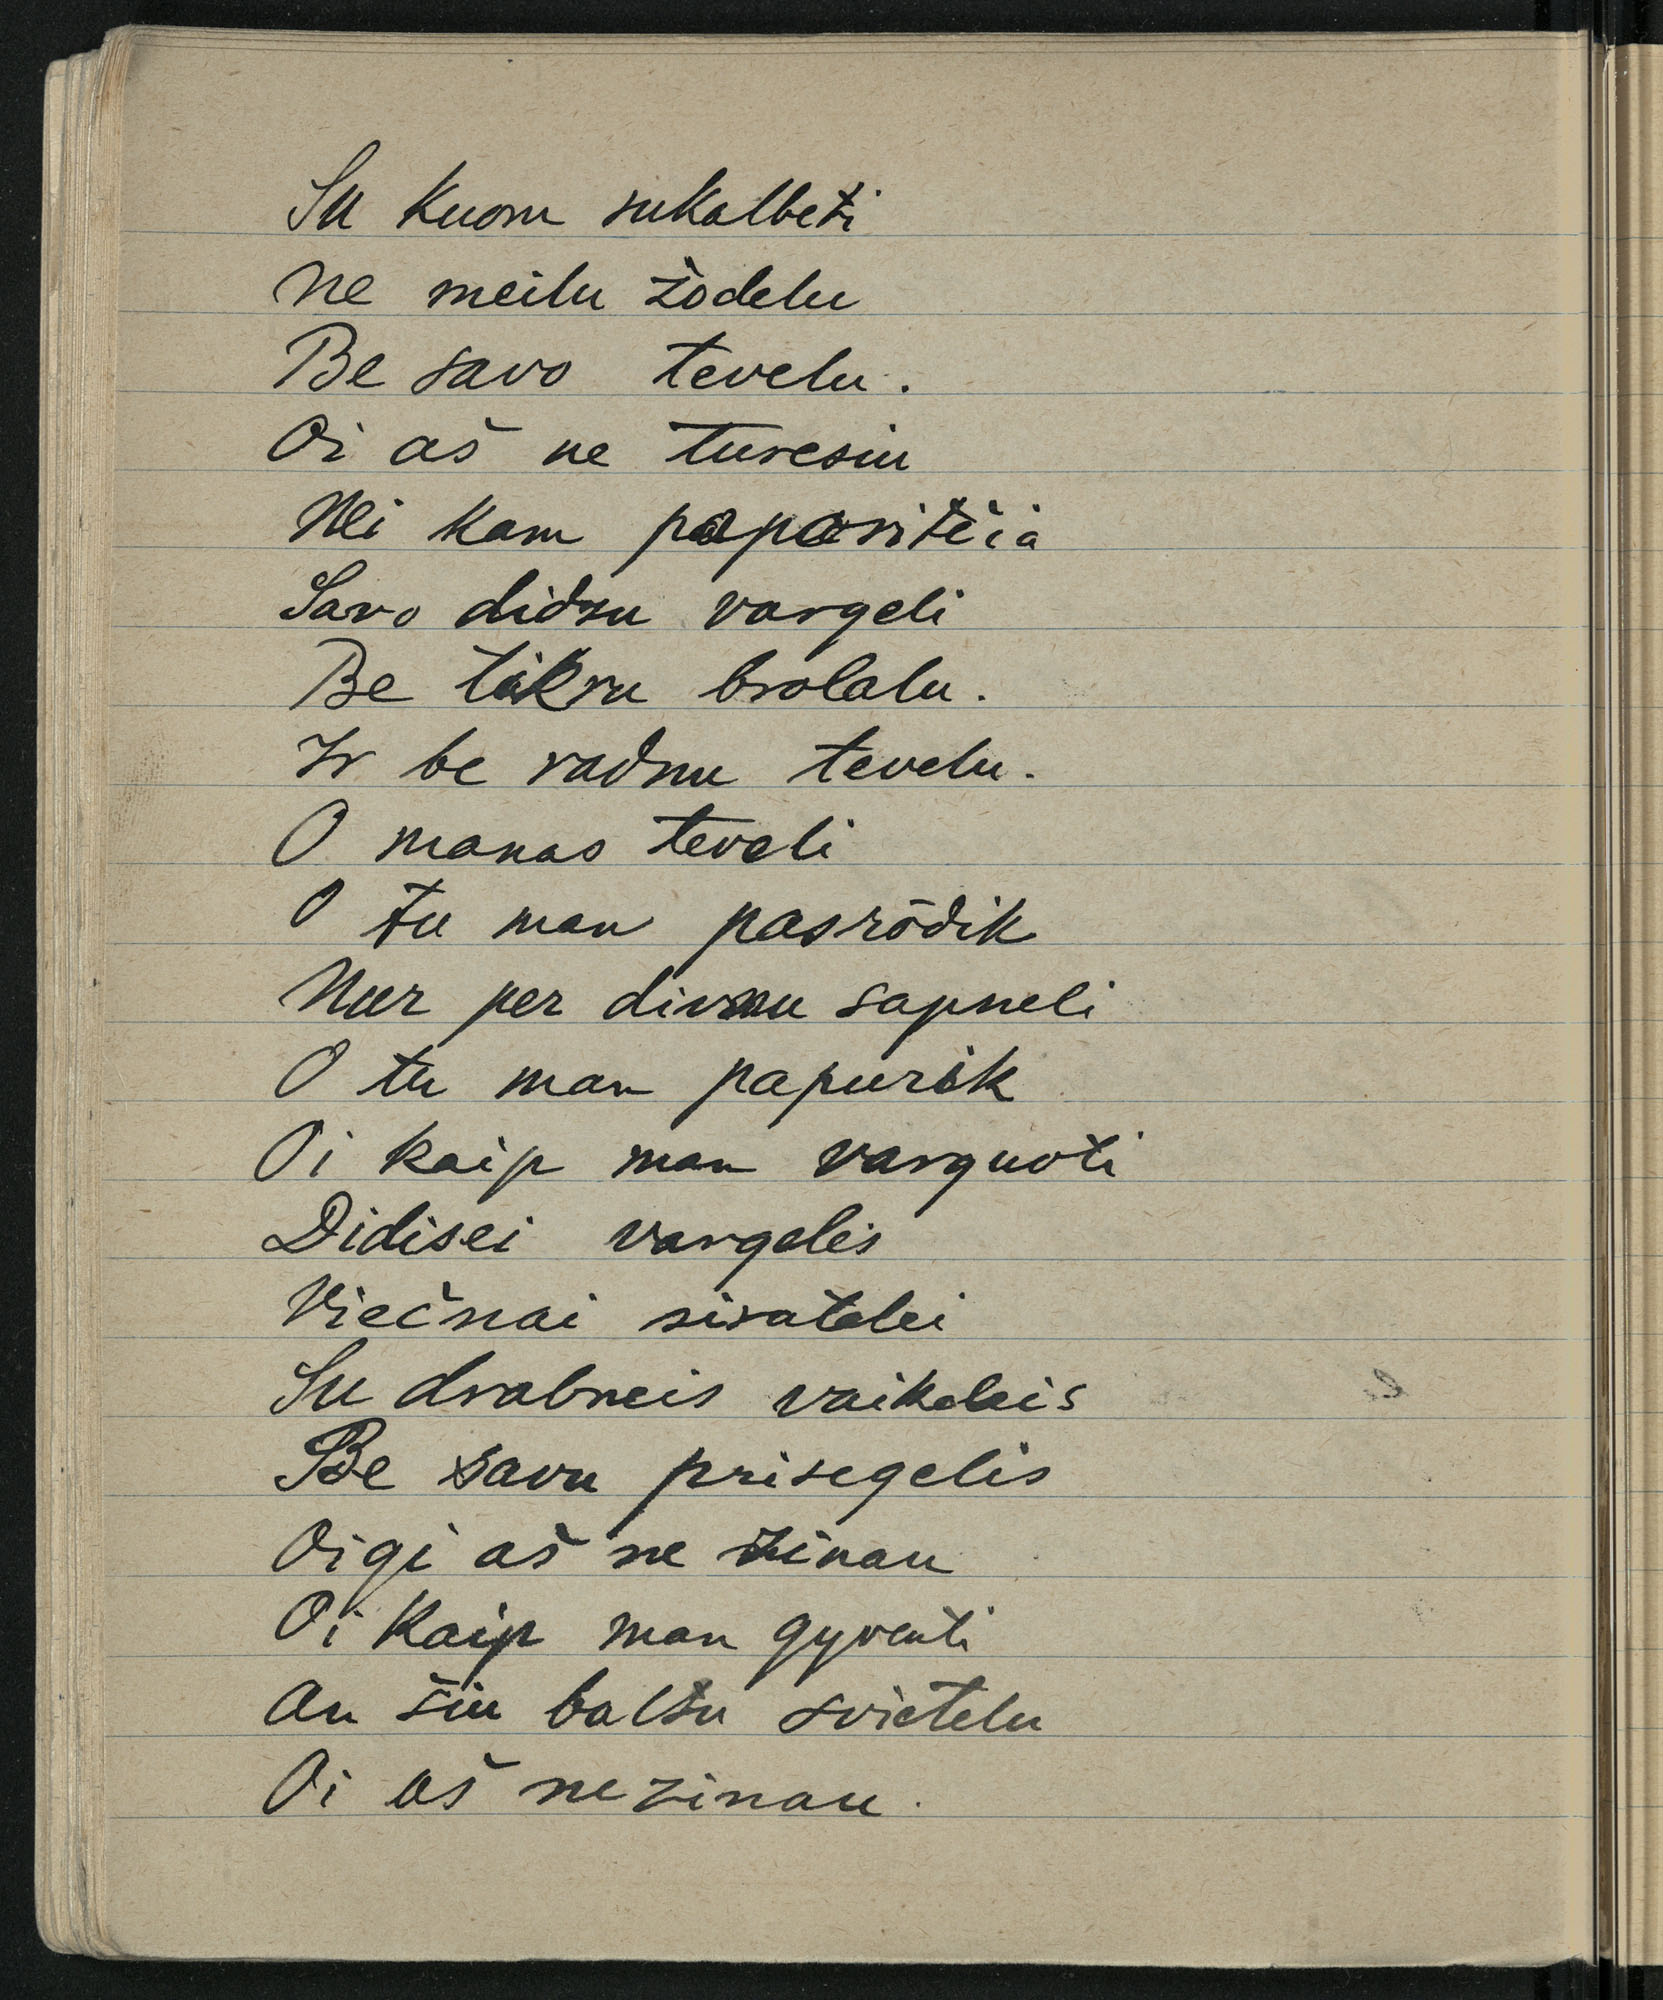 Su kuom sukalbeti
ne meilu žodelu
Be savo tevelu.
Oi aš ne turesiu
Nei kam papasitčia
Savo didzu vargeli
Be tikru brolalu.
Ir be radnu tevelu.
O manas teveli
O tu man pasrodik
Nor per divnu sapneli
O tu man papurik
Oi kaip man varguoti
Didisei vargelis
Viečnai siratelei
Su drabneis vaikeleis
Be savu prisegelis
Oigi aš ne žinau
Oi kaip man gyventi
An šiu baltu svietelu
Oi aš nezinau.